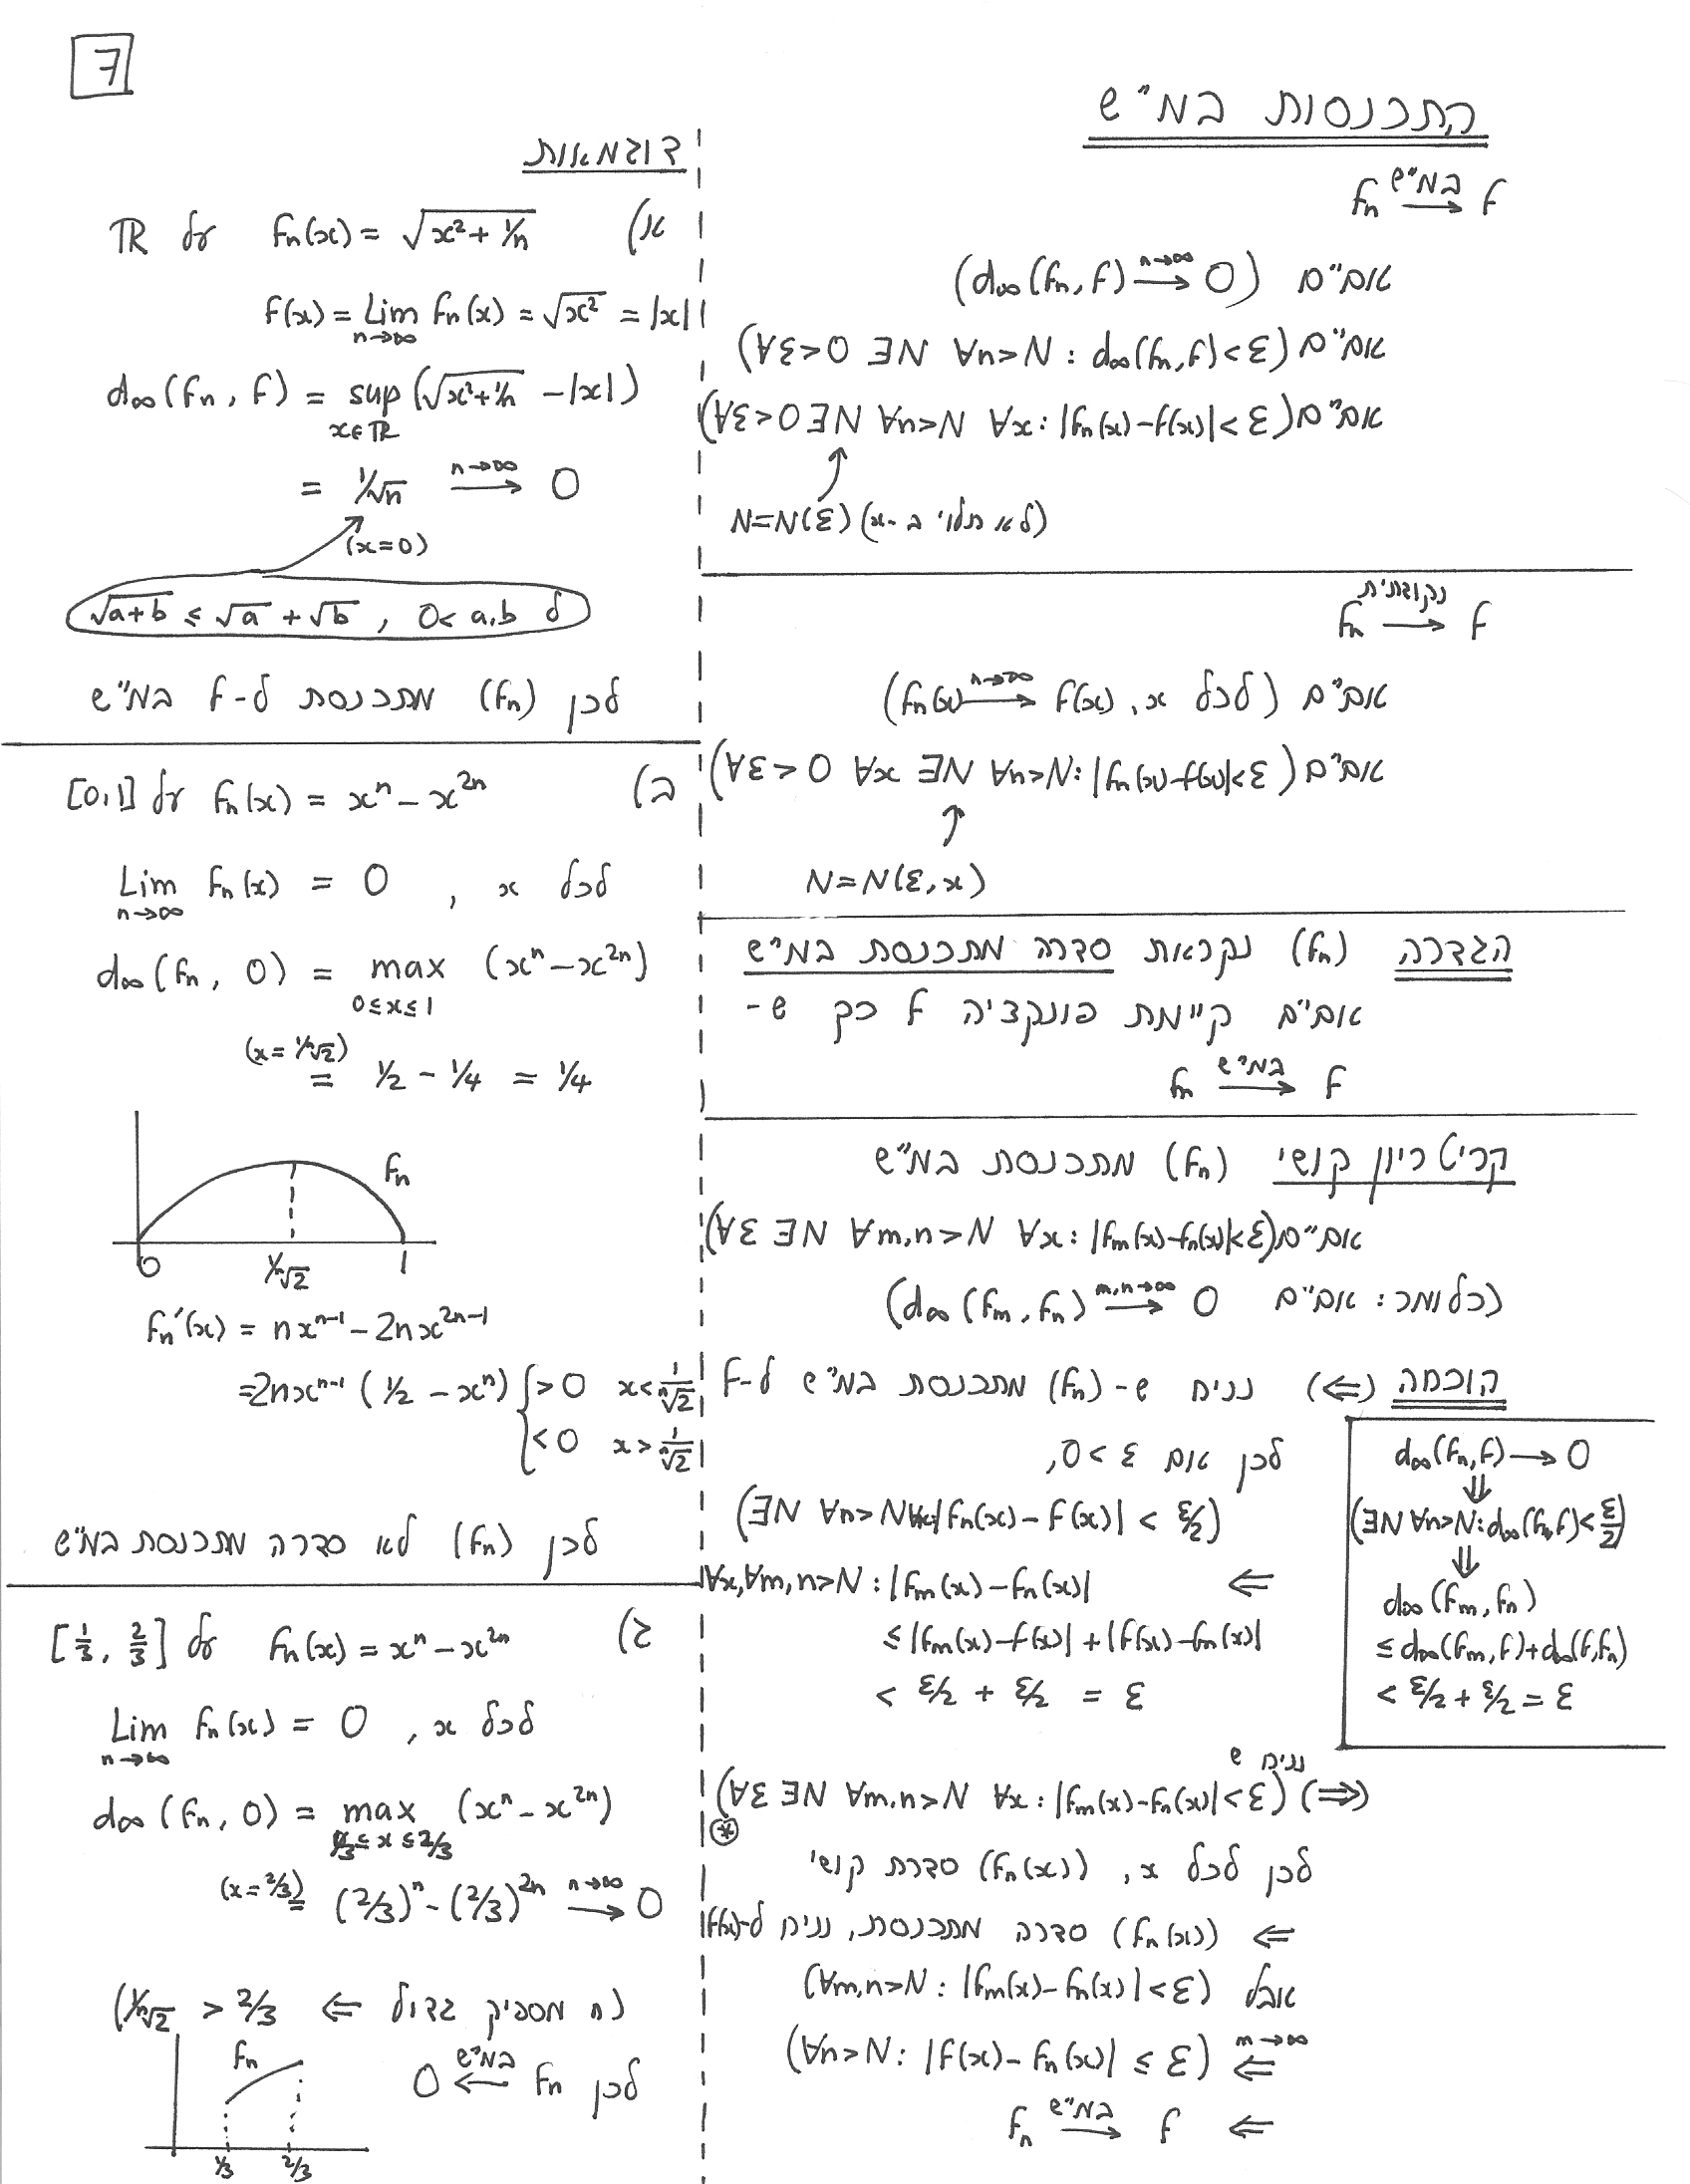 7
התכנסות במ"ש
fₙ —במ"ש→ f
אם"ם (d∞(fₙ, f) —n→∞→ 0)
אם"ם (∀ε>0 ∃N ∀n>N : d∞(fₙ,f)<ε)
אם"ם (∀ε>0 ∃N ∀n>N ∀x : |fₙ(x)-f(x)|<ε)
↑
N=N(ε) (לא תלוי ב-x)
fₙ —נקודתית→ f
אם"ם (לכל x, fₙ(x) —n→∞→ f(x))
אם"ם (∀ε>0 ∀x ∃N ∀n>N : |fₙ(x)-f(x)|<ε)
↑
N=N(ε,x)
הגדרה (fₙ) נקראת סדרה מתכנסת במ"ש
אם"ם קיימת פונקציה f כך ש-
fₙ —במ"ש→ f
קריטריון קושי (fₙ) מתכנסת במ"ש
אם"ם (∀ε ∃N ∀m,n>N ∀x : |fₘ(x)-fₙ(x)|<ε)
(כלומר : אם"ם d∞(fₘ, fₙ) —m,n→∞→ 0)
הוכחה (⇐) נניח ש-(fₙ) מתכנסת במ"ש ל-f
לכן אם ε>0,
(∃N ∀n>N ∀x |fₙ(x)-f(x)| < ε/2)
⇐ ∀x,∀m,n>N : |fₘ(x)-fₙ(x)|
≤ |fₘ(x)-f(x)| + |f(x)-fₙ(x)|
< ε/2 + ε/2 = ε
d∞(fₙ,f) → 0
⇓
(∃N ∀n>N : d∞(fₙ,f)<ε/2)
⇓
d∞(fₘ, fₙ)
≤ d∞(fₘ,f)+d∞(f,fₙ)
< ε/2 + ε/2 = ε
(⇒) נניח ש (∀ε ∃N ∀m,n>N ∀x : |fₘ(x)-fₙ(x)|<ε)
⊛
לכן לכל x, (fₙ(x)) סדרת קושי
⇐ (fₙ(x)) סדרה מתכנסת, נניח ל-f(x)
אבל (∀m,n>N : |fₘ(x)-fₙ(x)|<ε)
⇐ m→∞ (∀n>N : |f(x)-fₙ(x)| ≤ ε)
⇐ fₙ —במ"ש→ f
דוגמאות
א) fₙ(x) = √(x²+1/n) על ℝ
f(x) = Lim n→∞ fₙ(x) = √x² = |x|
d∞(fₙ, f) = sup x∈ℝ (√(x²+1/n) - |x|)
= 1/√n —n→∞→ 0
(x=0)
√(a+b) ≤ √a + √b , 0< a,b ל
לכן (fₙ) מתכנסת ל-f במ"ש
ב) fₙ(x) = xⁿ - x²ⁿ על [0,1]
Lim n→∞ fₙ(x) = 0 , לכל x
d∞(fₙ, 0) = max 0≤x≤1 (xⁿ - x²ⁿ)
(x=1/ⁿ√2) = 1/2 - 1/4 = 1/4
fₙ
0 1/ⁿ√2 1
fₙ'(x) = nxⁿ⁻¹ - 2nx²ⁿ⁻¹
=2nxⁿ⁻¹ (1/2 - xⁿ) { >0 x<1/ⁿ√2
<0 x>1/ⁿ√2
לכן (fₙ) לא סדרה מתכנסת במ"ש
ג) fₙ(x) = xⁿ - x²ⁿ על [1/3, 2/3]
Lim n→∞ fₙ(x) = 0 , לכל x
d∞(fₙ, 0) = max 1/3≤x≤2/3 (xⁿ - x²ⁿ)
(x=2/3) = (2/3)ⁿ - (2/3)²ⁿ —n→∞→ 0
(n מספיק גדול ⇐ 1/ⁿ√2 > 2/3)
לכן fₙ —במ"ש→ 0
fₙ
1/3 2/3